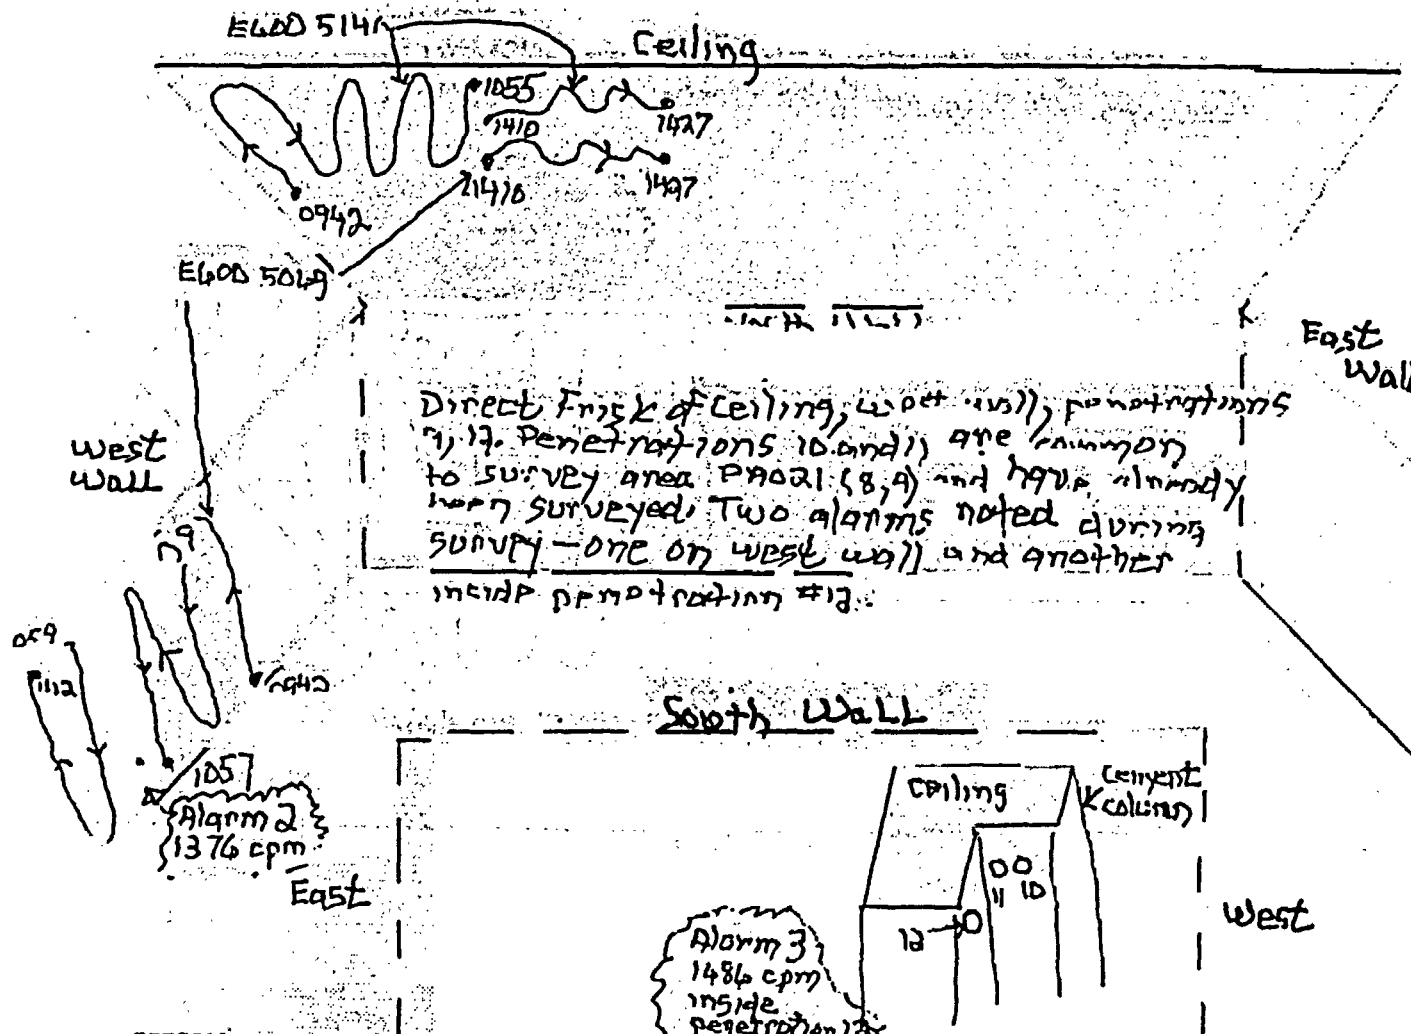 E600 5141
Ceiling
1055
1410
1427
1410
1427
0942
E600 5049
East
Wall
Direct Frisk of Ceiling, west wall, penetrations
12. Penetrations 10 and 11 are common
to survey area PA021 (8,9) and have already
been surveyed. Two alarms noted during
survey - one on west wall and another
inside penetration #12.
West
Wall
1112
0942
1057
Alarm 2
1376 cpm
South Wall
East
Ceiling
Cement
column
11 10
12
West
Alarm 3
1486 cpm
inside
penetration 12